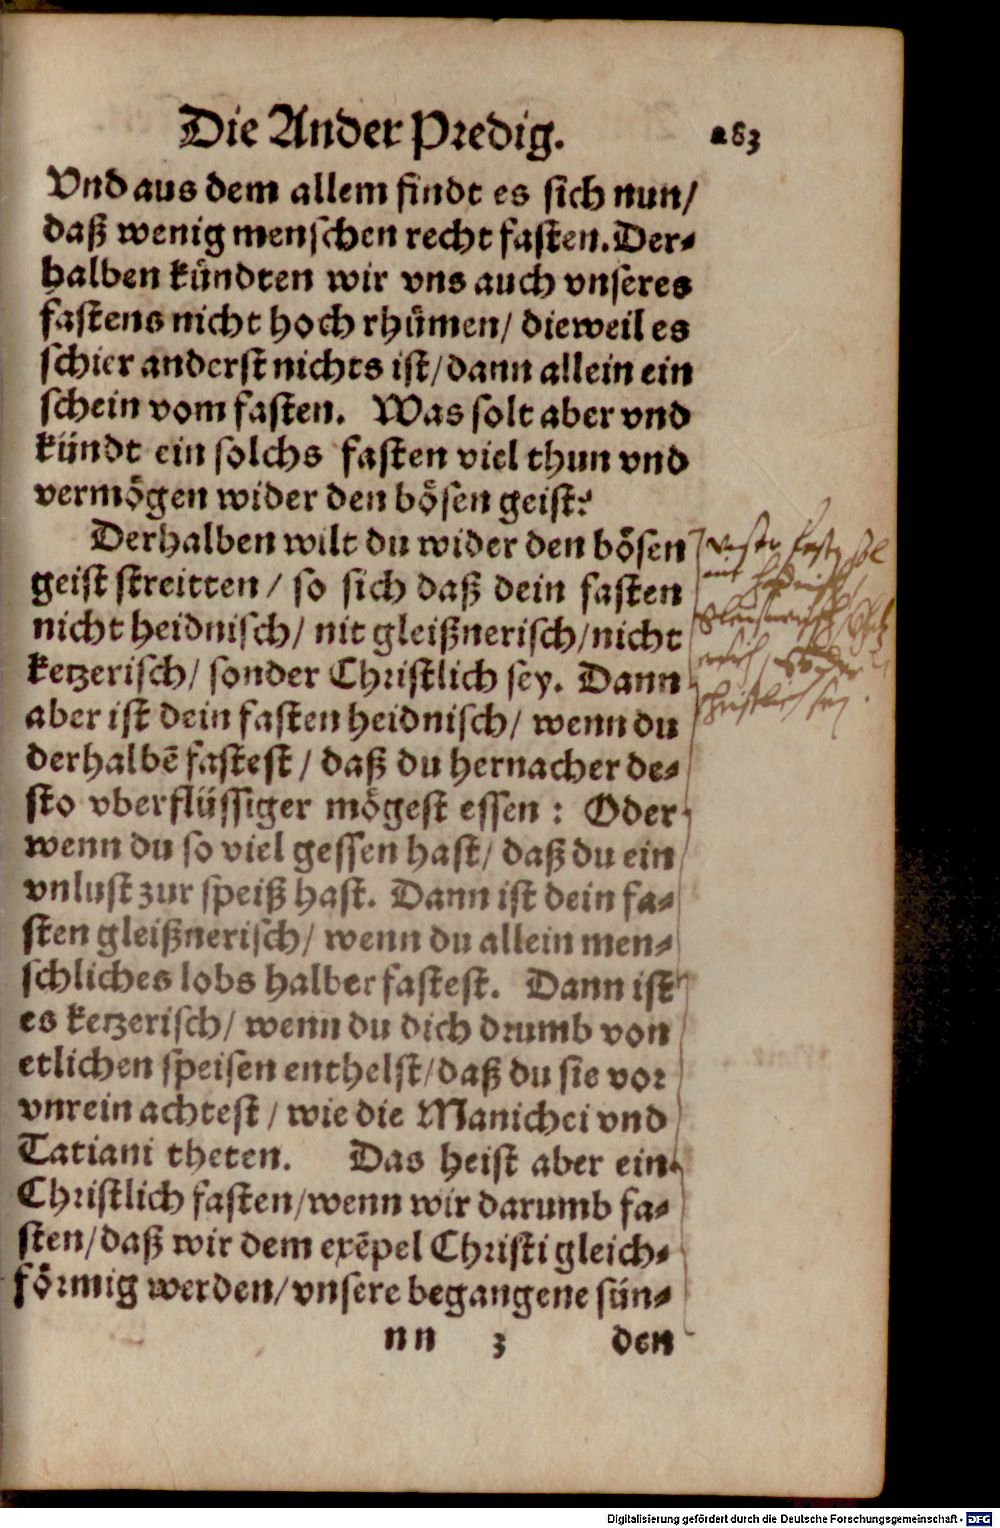 Die Ander Predig. 283
Vnd aus dem allem findt es sich nun/
daß wenig menschen recht fasten. Der-
halben kündten wir vns auch vnseres
fastens nicht hoch rhümen/ dieweil es
schier anderst nichts ist/ dann allein ein
schein vom fasten. Was solt aber vnd
kündt ein solchs fasten viel thun vnd
vermögen wider den bösen geist?
Derhalben wilt du wider den bösen
geist streitten/ so sich daß dein fasten
nicht heidnisch/ nit gleißnerisch/ nicht
ketzerisch/ sonder Christlich sey. Dann
aber ist dein fasten heidnisch/ wenn du
derhalbē fastest/ daß du hernacher de-
sto vberflüssiger mögest essen: Oder
wenn du so viel gessen hast/ daß du ein
vnlust zur speiß hast. Dann ist dein fa-
sten gleißnerisch/ wenn du allein men-
schliches lobs halber fastest. Dann ist
es ketzerisch/ wenn du dich drumb von
etlichen speisen enthelst/ daß du sie vor
vnrein achtest/ wie die Manichei vnd
Tatiani theten. Das heist aber ein
Christlich fasten/ wenn wir darumb fa-
sten/ daß wir dem exēpel Christi gleich-
förmig werden/ vnsere begangene sün-
nn 3 den
christlich sey.
Digitalisierung gefördert durch die Deutsche Forschungsgemeinschaft - DFG